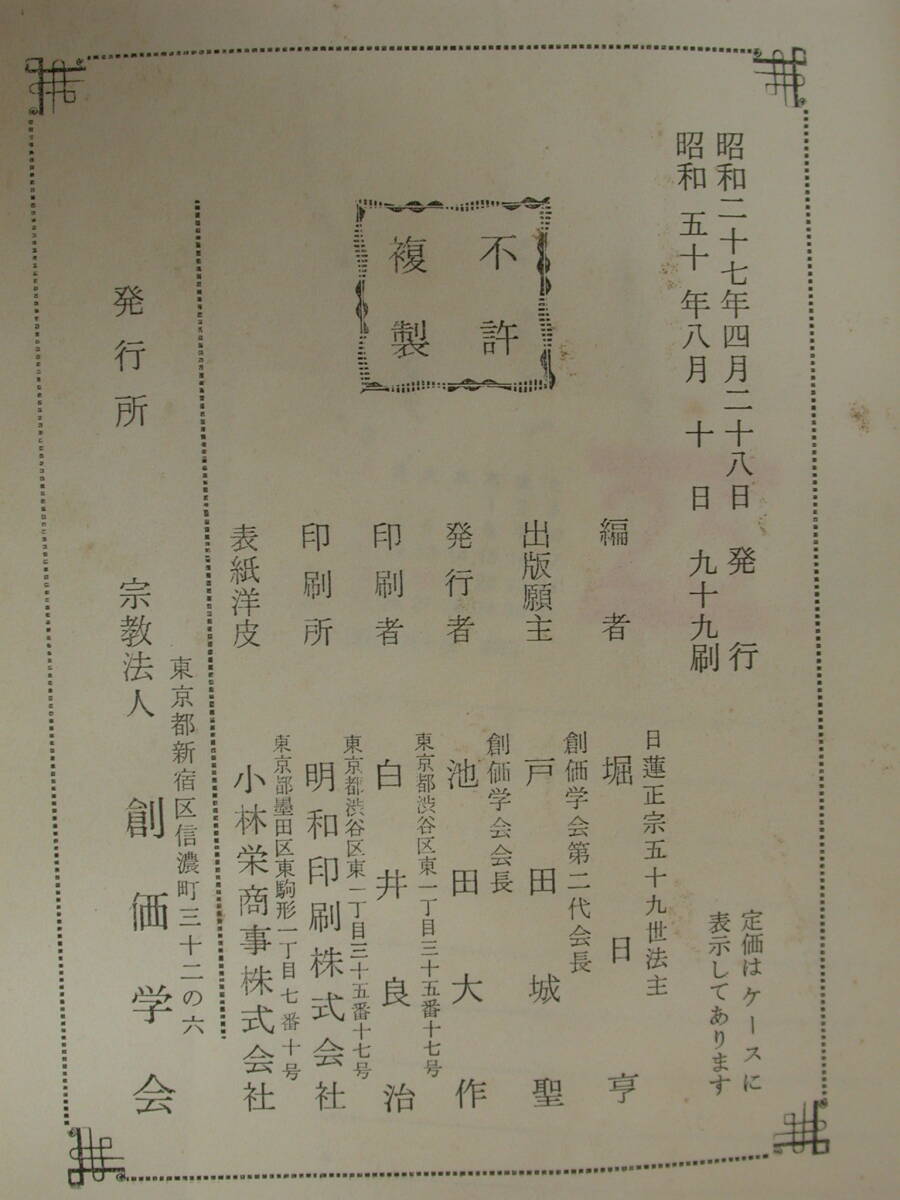 昭和二十七年四月二十八日　発　行
昭和　五十　年八月　十　日　九十九刷
定価はケースに
表示してあります
不許
複製
日蓮正宗五十九世法主
編者　堀日亨
創価学会第二代会長
出版願主　戸田城聖
創価学会会長
発行者　池田大作
東京都渋谷区東一丁目三十五番十七号
印刷者　白井良治
東京都渋谷区東一丁目三十五番十七号
印刷所　明和印刷株式会社
東京都墨田区東駒形一丁目七番十号
表紙洋皮　小林栄商事株式会社
東京都新宿区信濃町三十二の六
発行所　宗教法人　創価学会